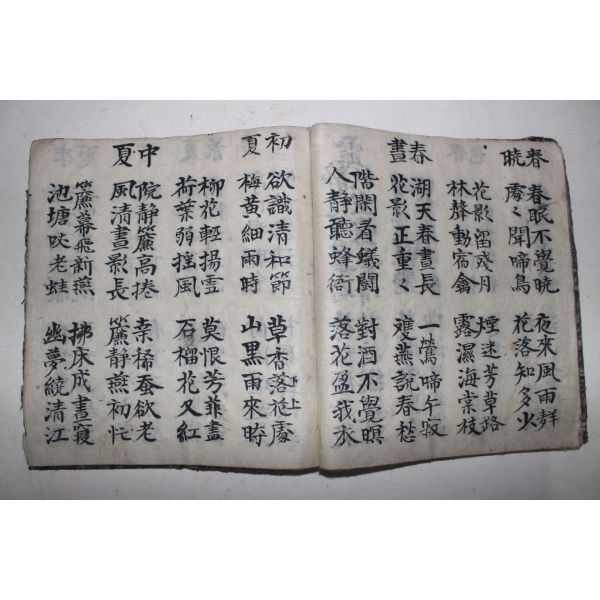 春曉
春眠不覺曉
處々聞啼鳥
夜來風雨聲
花落知多少
花影留殘月
林聲動宿禽
煙迷芳草路
露濕海棠枝
春晝
湖天春晝長
花影正重々
一鶯啼午寂
雙燕說春愁
階閑看蟻鬪
人靜聽蜂衙
對酒不覺暝
落花盈我衣
初夏
欲識清和節
梅黃細雨時
草香落花處
下上
山黑雨來時
柳花輕揚雪
荷葉弱搖風
莫恨芳菲盡
石榴花又紅
中夏
院靜簾高捲
風清晝影長
葉稀蚕欲老
簾靜燕初忙
簾幕飛新燕
池塘吠老蛙
拂床成晝寢
幽夢繞清江